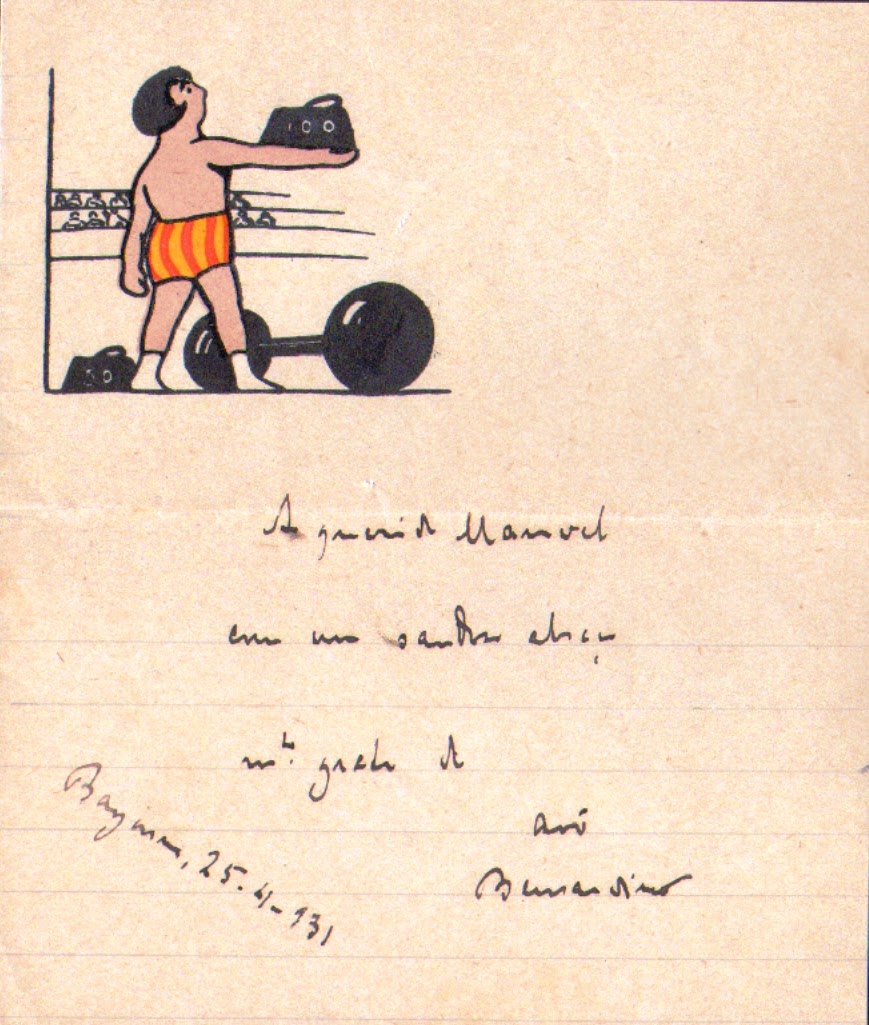 Ao querido Manoel
com um saudoso abraço
m.to do
avô
Bernardino
Bayonne, 25-4-931